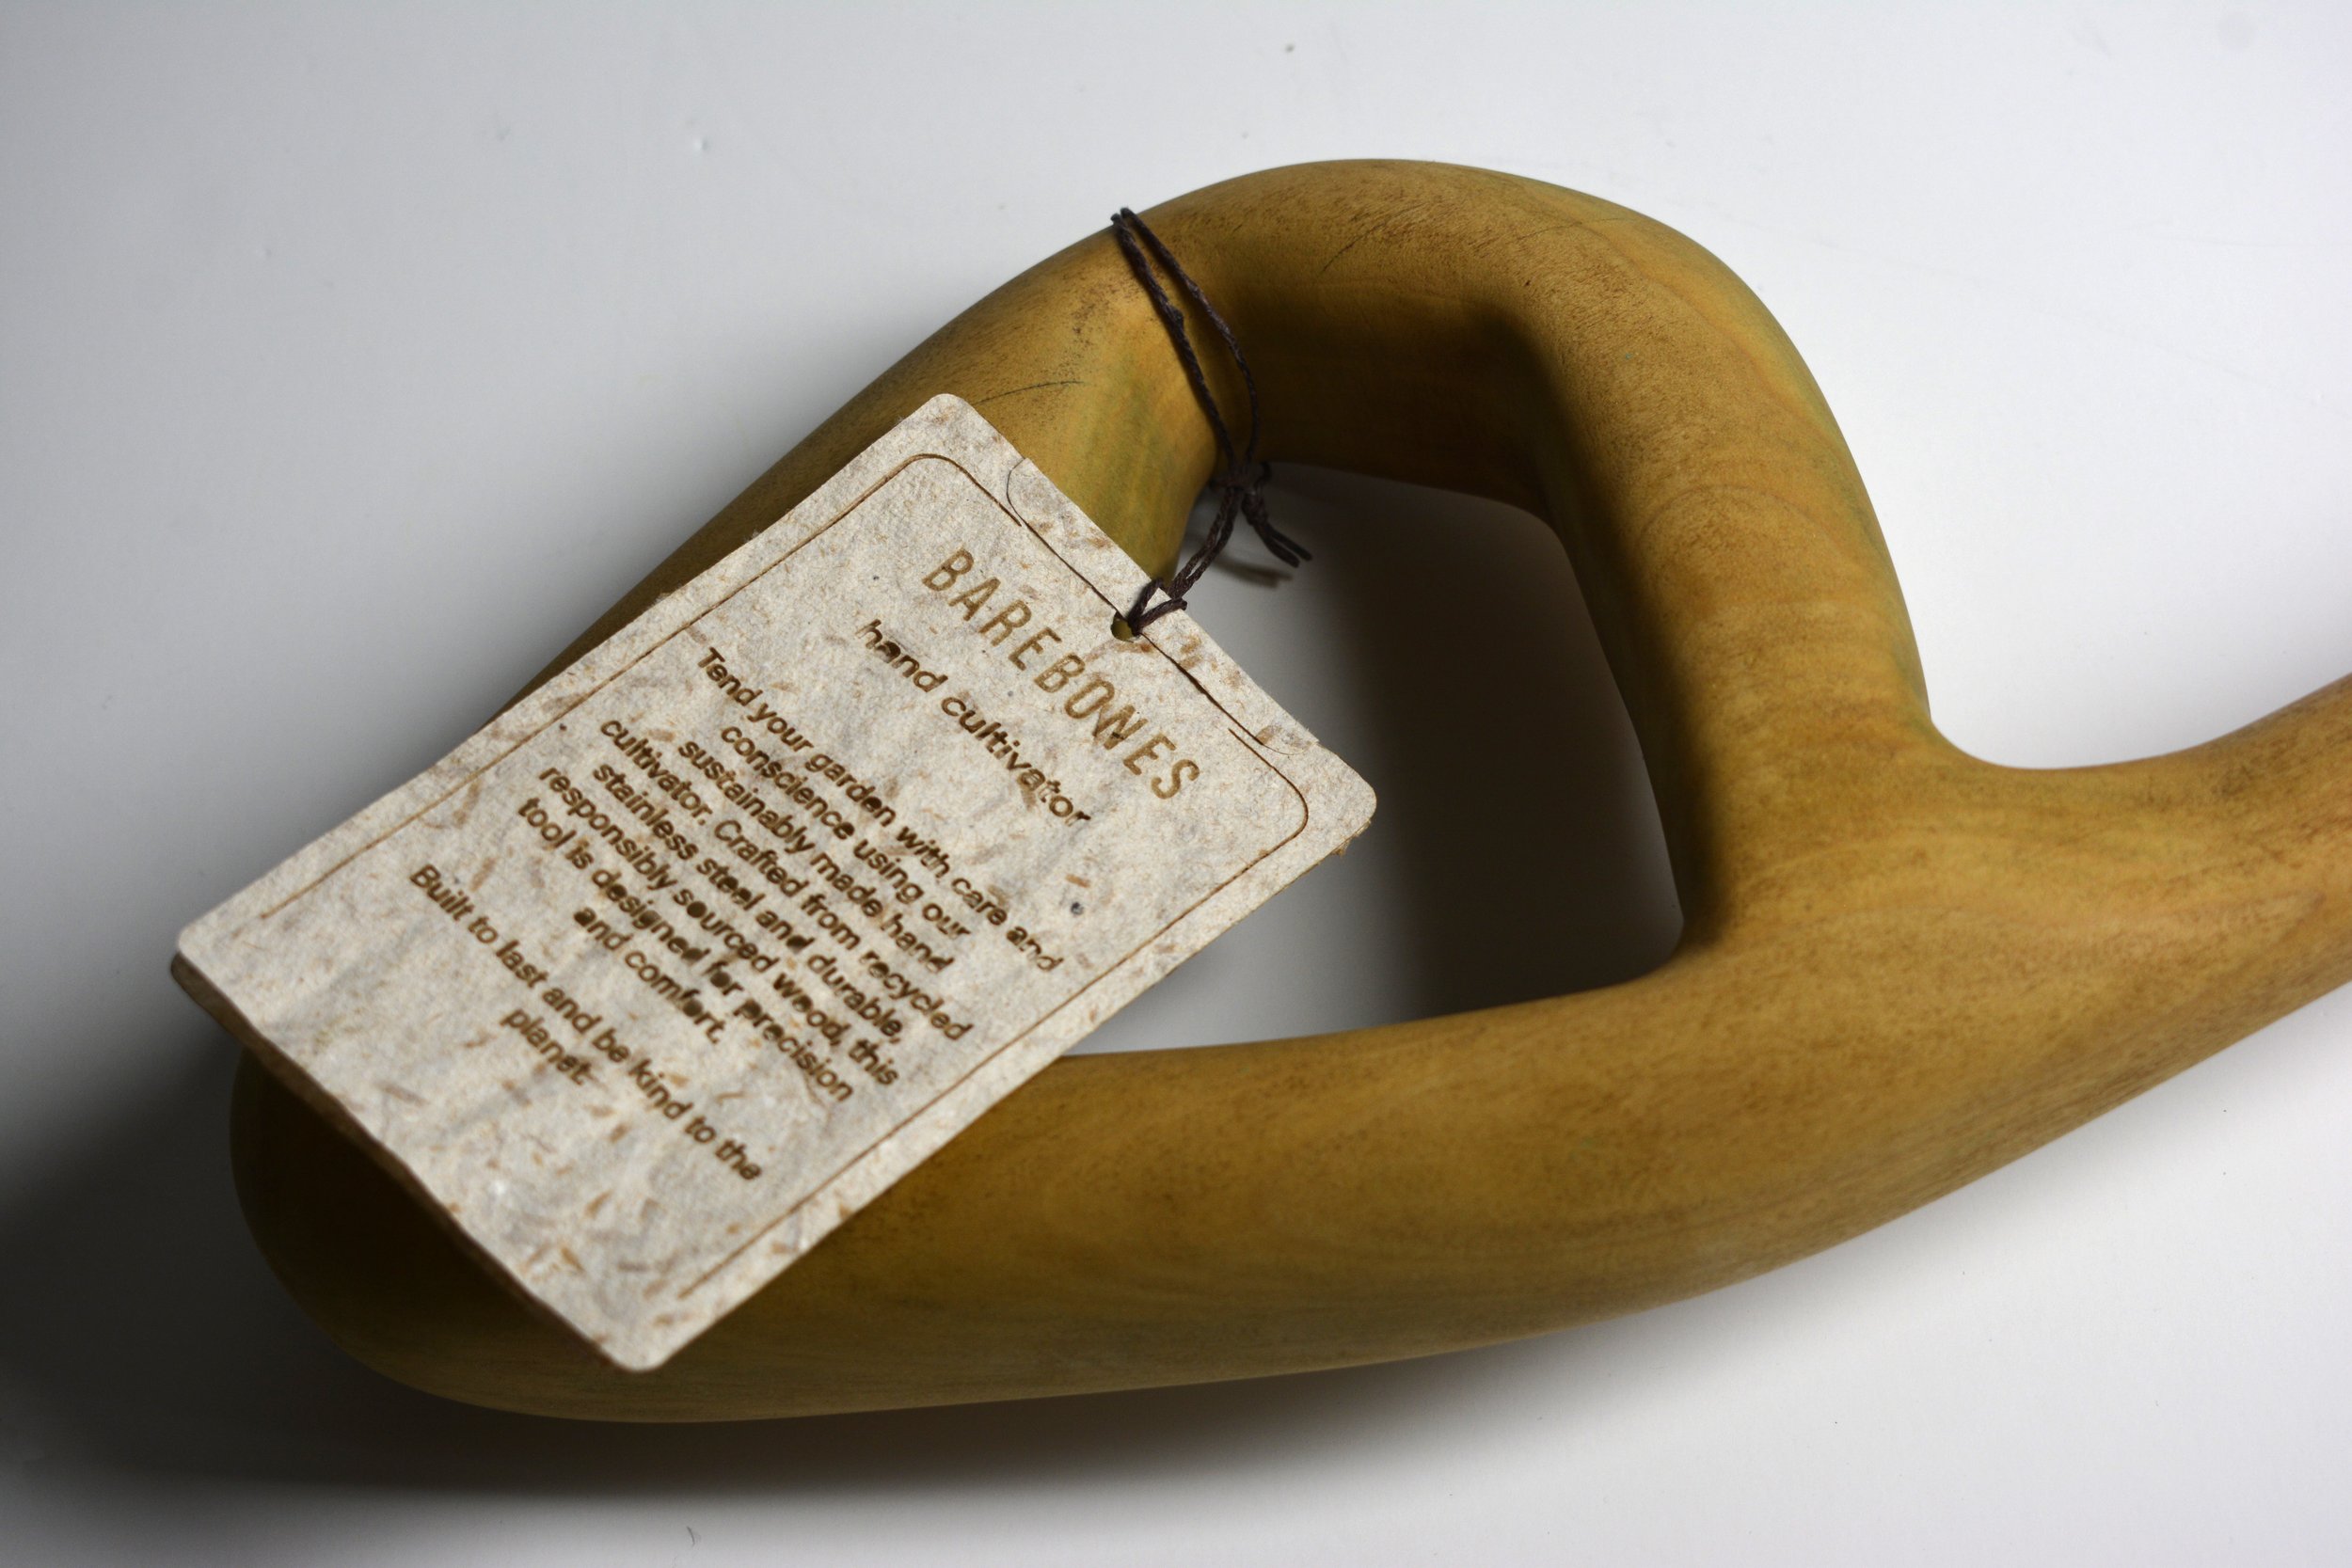 BAREBONES
hand cultivator
Tend your garden with care and
conscience using our
sustainably made hand
cultivator. Crafted from recycled
stainless steel and durable,
responsibly sourced wood, this
tool is designed for precision
and comfort.
Built to last and be kind to the
planet.